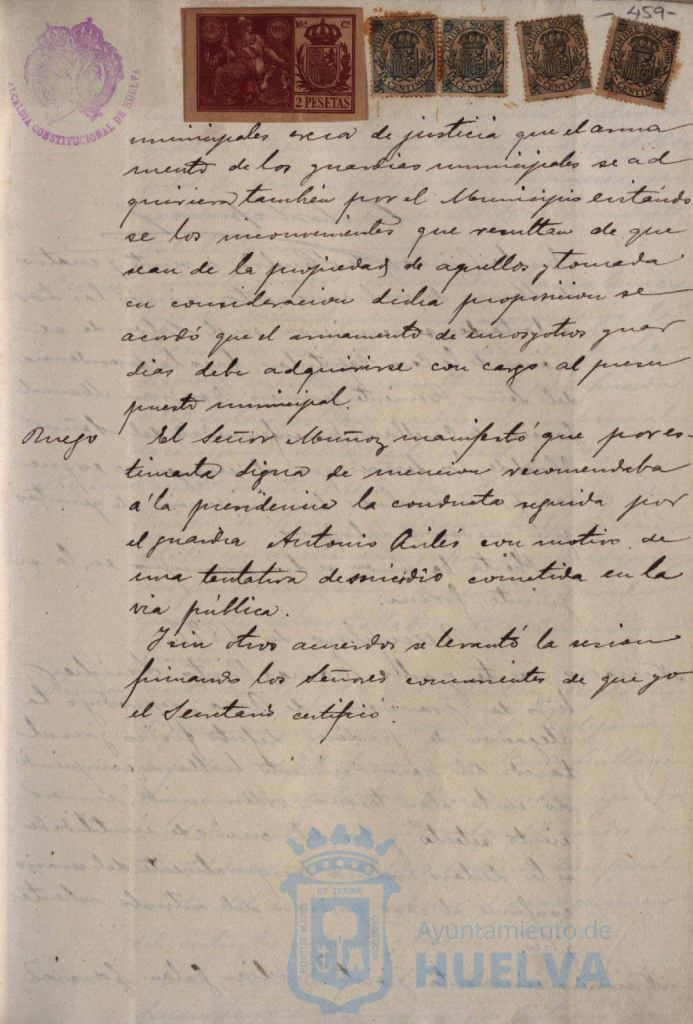 -459-
ALCALDIA CONSTITUCIONAL DE HUELVA
10ª Cª
2 PESETAS
municipales creia de justicia que el arma
mento de los guardias municipales se ad
quiriera también por el Municipio evitándo
se los inconvenientes que resultan de que
sean de la propiedad de aquellos y tomada
en consideracion dicha proposicion se
acordó que el armamento de unos y otros guar
dias debe adquirirse con cargo al presu
puesto municipal.
Ruego
El Señor Muñoz manifestó que por es-
timarla digna de mencion recomendaba
á la presidencia la conducta seguida por
el guardia Antonio Avilés con motivo de
una tentativa de suicidio cometida en la
via pública.
Y sin otros acuerdos se levantó la sesion
firmando los Señores concurrentes de que yo
el Secretario certifico.
ET TERRÆ
PORTUS MARIS
CUSTODIA
Ayuntamiento de
HUELVA